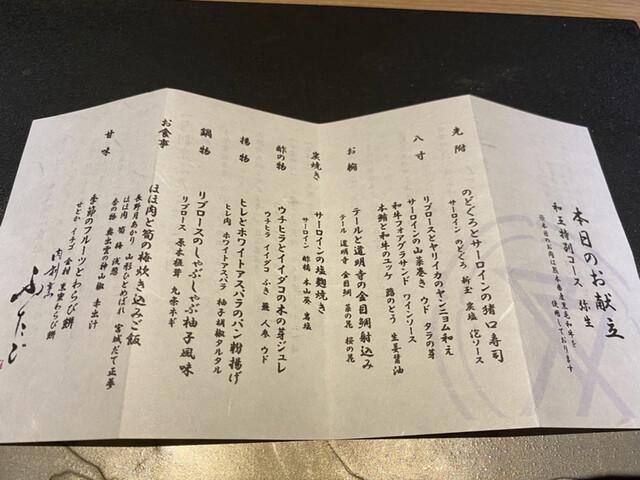 本日のお献立
和王特別コース 弥生
※本日の牛肉は熊本県産黒毛和牛を
使用しております
先附
のどぐろとサーロインの猪口寿司
サーロイン のどぐろ 新玉 炭塩 花ソース
八寸
リブロースとヤリイカのヤンニョム和え
サーロインの山菜巻き ウド タラの芽
和牛フォアグラサンド ワインソース
本鮪と和牛のユッケ 蕗のとう 生姜醤油
お椀
テールと道明寺の金目鯛射込み
テール 道明寺 金目鯛 菜の花 桜の花
炭焼き
サーロインの塩麹焼き
サーロイン 酢橘 本山葵 岩塩
酢の物
ウチヒラとイイダコの木の芽ジュレ
ウチヒラ イイダコ ふき 蕨 人参 ウド
揚物
ヒレとホワイトアスパラのパン粉揚げ
ヒレ肉 ホワイトアスパラ 柚子胡椒タルタル
鍋物
リブロースのしゃぶしゃぶ柚子風味
リブロース 原木椎茸 九条ネギ
お食事
ほほ肉と筍の梅炊き込みご飯
ほほ肉 筍 梅 浅葱 宮城だて正夢
香の物 奥出雲の神山椒 赤出汁
甘味
季節のフルーツとわらび餅
せとか イチゴ 金柑 黒蜜わらび餅
肉割烹
ふたご